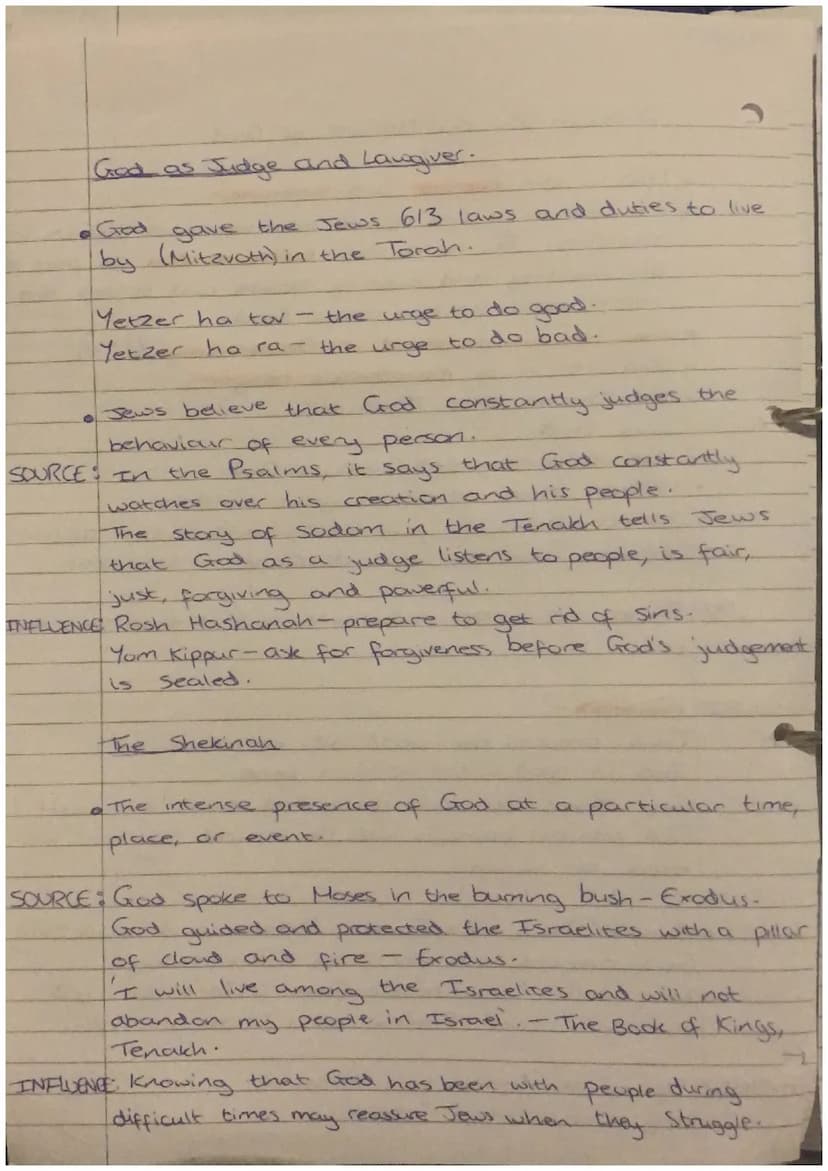 God as Judge and Lawgiver.
• God gave the Jews 613 laws and duties to live
by (Mitzvoth) in the Torah.
Yetzer ha tov - the urge to do good.
Yetzer ha ra - the urge to do bad.
• Jews believe that God constantly judges the
behaviour of every person.
SOURCE: In the Psalms, it says that God constantly
watches over his creation and his people.
The story of Sodom in the Tenakh tells Jews
that God as a judge listens to people, is fair,
just, forgiving and powerful.
INFLUENCE: Rosh Hashanah - prepare to get rid of sins.
Yom Kippur - ask for forgiveness before God's judgement
is sealed.
The Shekinah
• The intense presence of God at a particular time,
place, or event.
SOURCE: God spoke to Moses in the burning bush - Exodus.
God guided and protected the Israelites with a pillar
of cloud and fire - Exodus.
'I will live among the Israelites and will not
abandon my people in Israel'. - The Book of Kings,
Tenakh.
INFLUENCE: Knowing that God has been with people during
difficult times may reassure Jews when they struggle.